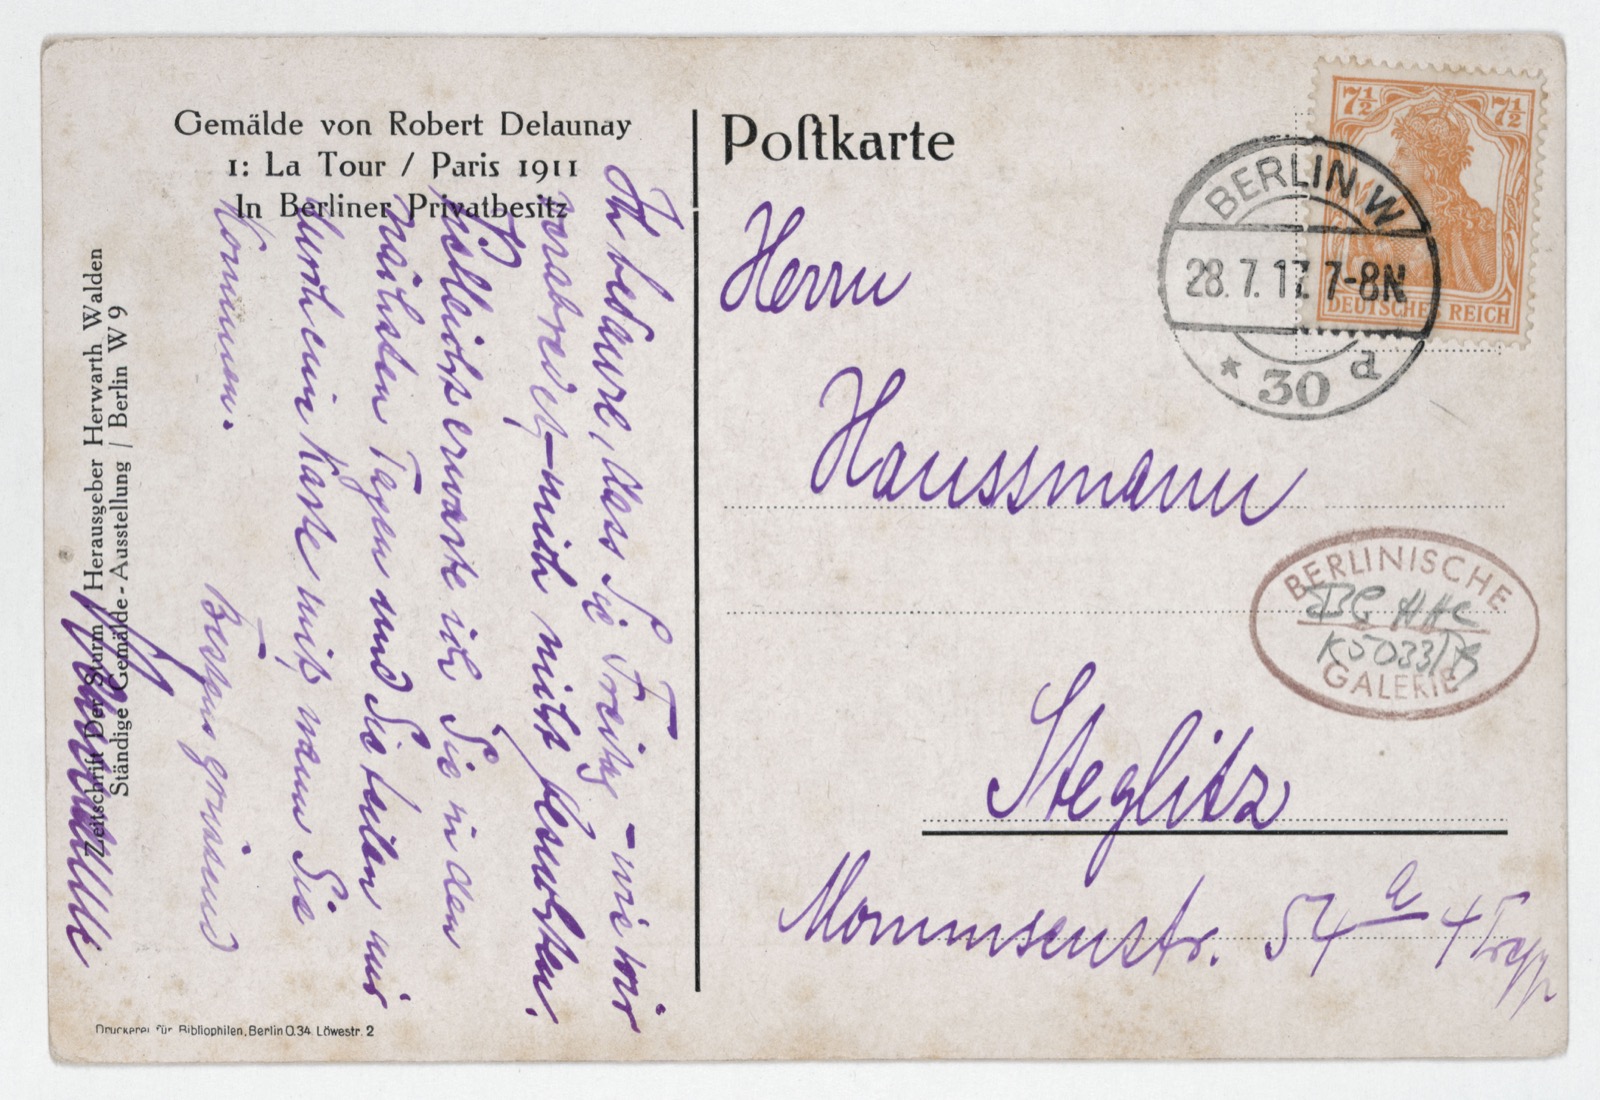 Gemälde von Robert Delaunay
1: La Tour / Paris 1911
In Berliner Privatbesitz
Zeitschrift Der Sturm / Herausgeber Herwarth Walden
Ständige Gemälde-Ausstellung / Berlin W 9
Ich bedaure, dass Sie Freitag – wie wir
verabredet – mich nicht besuchten.
Vielleicht erwarte ich Sie in den
nächsten Tagen und Sie teilen mir
durch eine Karte mit, wann Sie
kommen.
Bestens grüssend
Druckerei für Bibliophilen, Berlin O.34. Löwestr. 2
Poſtkarte
7½ 7½
DEUTSCHES REICH
BERLIN W
28.7.17. 7-8N
* 30 d
Herrn
Haussmann
BERLINISCHE
BG HHC
GALERIE
Steglitz
Mommsenstr. 54 a 4 Trepp